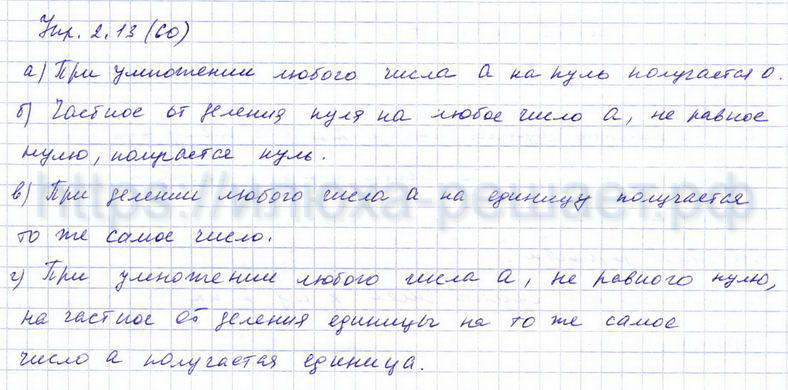 Упр. 2.13 (60)
а) При умножении любого числа а на нуль получается 0.
б) Частное от деления нуля на любое число а, не равное
нулю, получается нуль.
в) При делении любого числа а на единицу получается
то же самое число.
г) При умножении любого числа а, не равного нулю,
на частное от деления единицы на то же самое
число а получается единица.